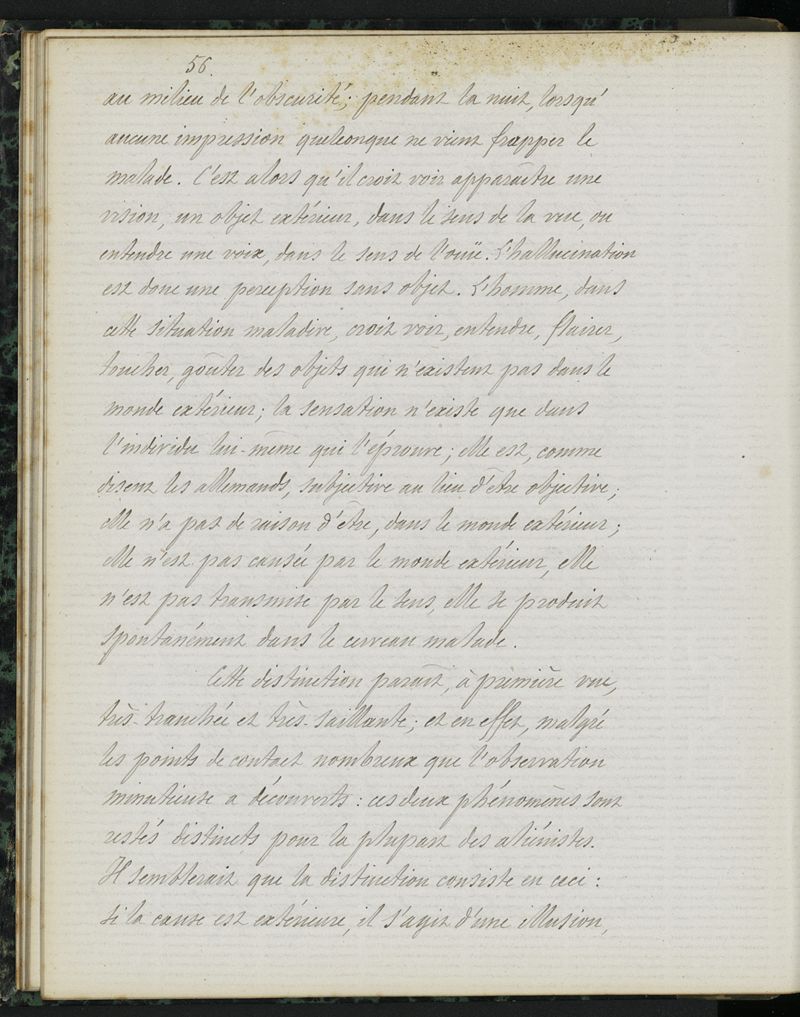 56.
au milieu de l'obscurité; pendant la nuit, lorsqu'
aucune impression quelconque ne vient frapper le
malade. C'est alors qu'il croit voir apparaître une
vision, un objet extérieur, dans le sens de la vue, ou
entendre une voix, dans le sens de l'ouïe. L'hallucination
est donc une perception sans objet. L'homme, dans
cette situation maladive, croit voir, entendre, flairer,
toucher, goûter des objets qui n'existent pas dans le
monde extérieur; la sensation n'existe que dans
l'individu lui-même qui l'éprouve; elle est, comme
disent les allemands, subjective au lieu d'être objective;
elle n'a pas de raison d'être, dans le monde extérieur;
elle n'est pas causée par le monde extérieur, elle
n'est pas transmise par le sens, elle se produit
spontanément dans le cerveau malade.
Cette distinction paraît, à première vue,
très-tranchée et très-saillante; et en effet, malgré
les points de contact nombreux que l'observation
minutieuse a découverts : ces deux phénomènes sont
restés distincts pour la plupart des aliénistes.
Il semblerait que la distinction consiste en ceci :
Si la cause est extérieure, il s'agit d'une illusion,